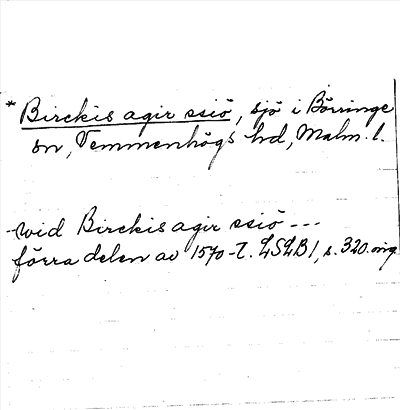 * Birckis agir ssiö, sjö i Börringe
sn, Vemmenhögs hd, Malm. l.
wid Birckis agir ssiö ---
förra delen av 1570-t. LSLB 1, s. 320. orig